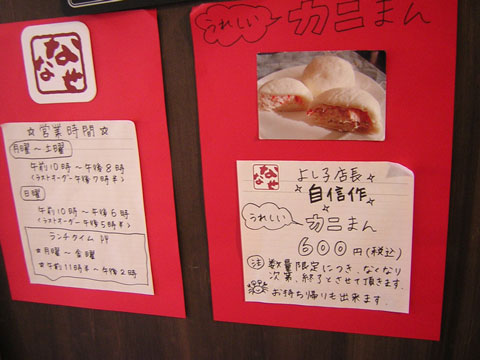 ななせ
☆営業時間☆
月曜〜土曜
午前10時〜午後8時
(ラストオーダー午後7時半)
日曜
午前10時〜午後6時
(ラストオーダー午後5時半)
ランチタイム
*月曜〜金曜
*午前11時半〜午後2時
うれしい カニまん
ななせ よし子店長
自信作
うれしい カニまん
600円(税込)
注 数量限定につき、なくなり
次第、終了とさせて頂きます。
お持ち帰りも出来ます。